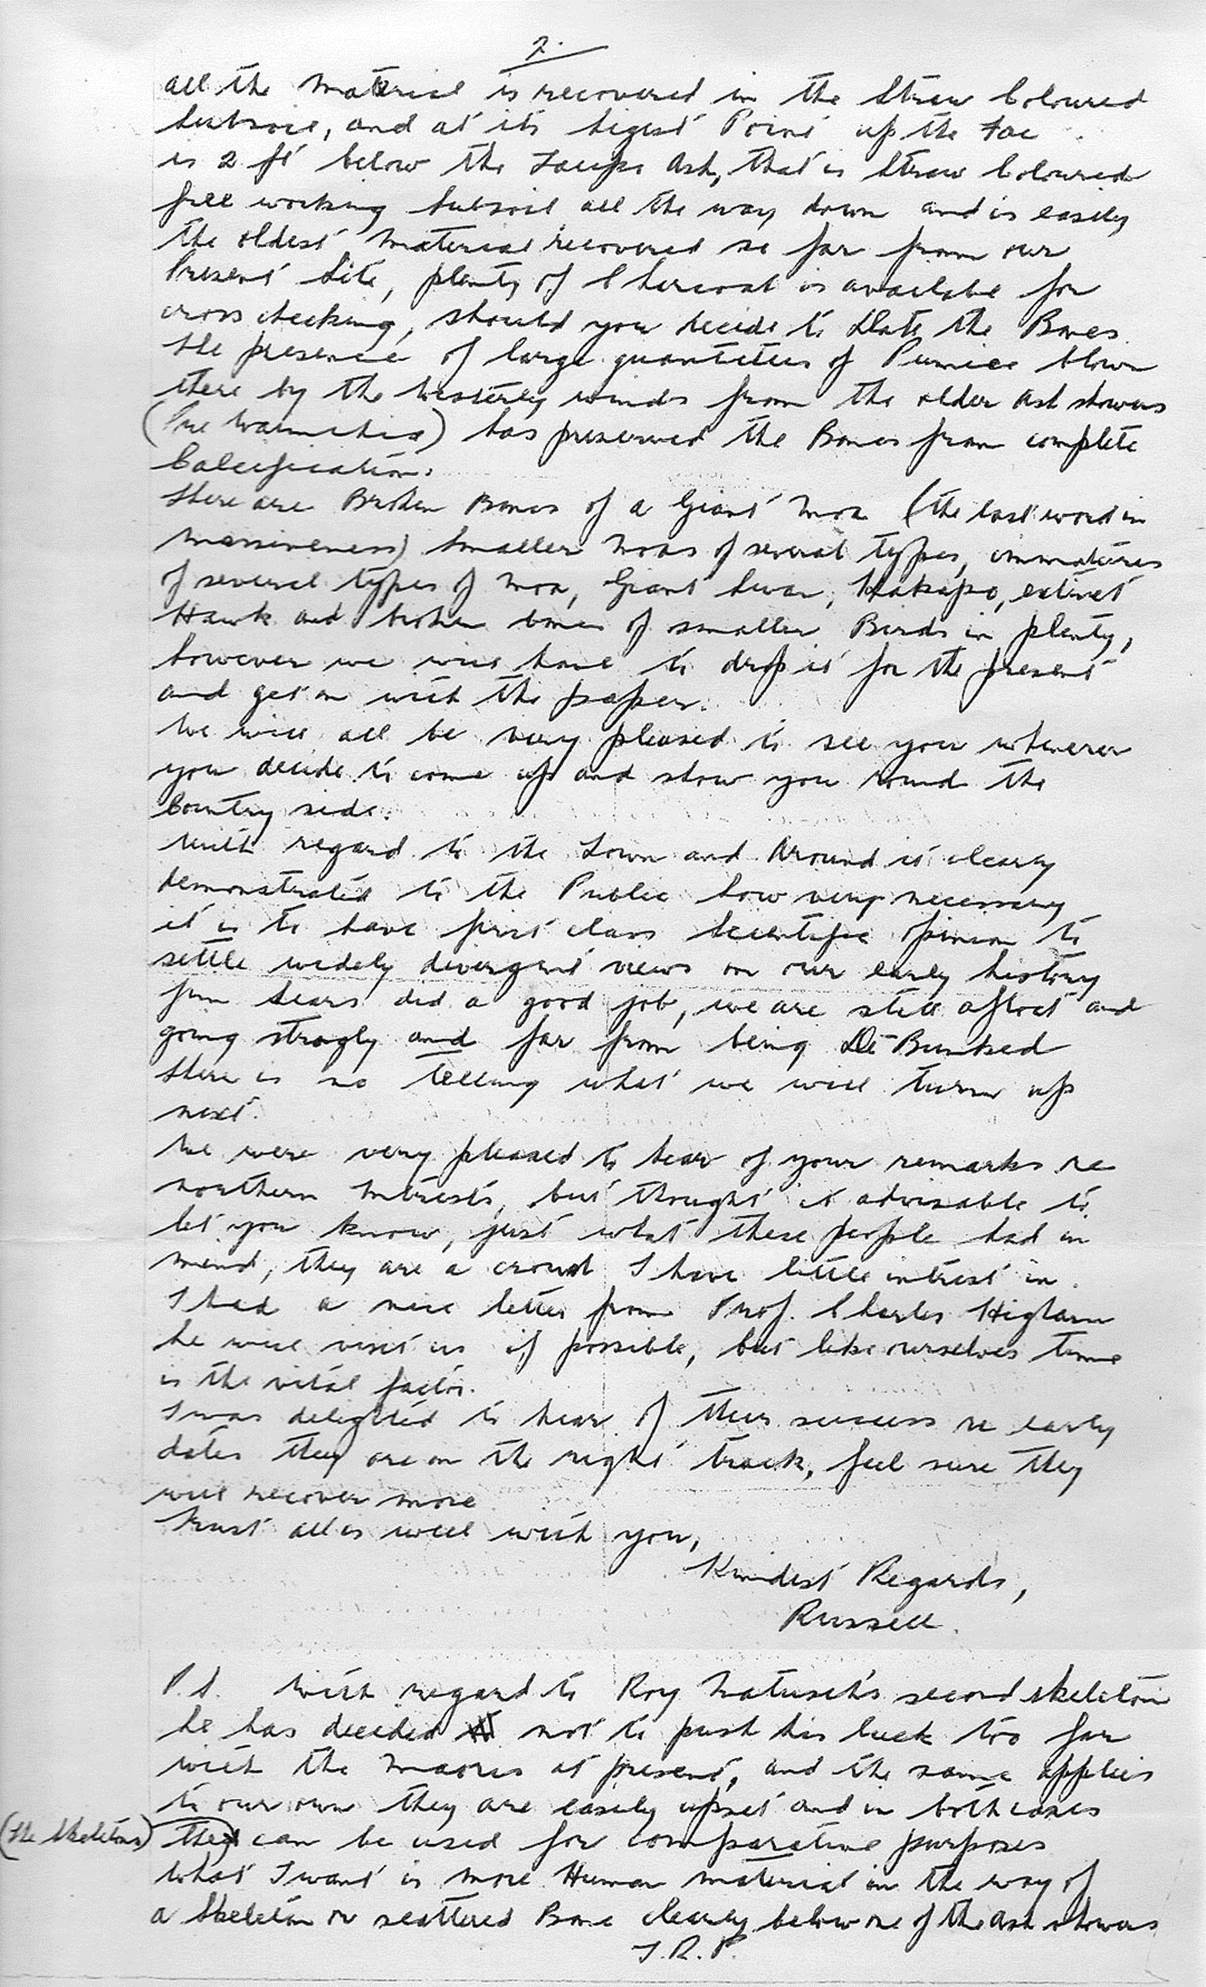 2.
all the material is recovered in the Straw Coloured
subsoil, and at its higest Point up the Fac
is 2 ft below the Taupo Ash, that is Straw Coloured
free working subsoil all the way down and is easily
the oldest material recovered so far from our
Present Site, plenty of Charcoal is available for
cross checking, should you decide to Date the Bones.
the presence of large quantities of Pumice blown
there by the westerly winds from the older Ash showers
(Pre Waimihia) has preserved the Bones from complete
Calcification.
there are Broken Bones of a Giant Moa (the last word in
massiveness) smaller Moas of several types, immatures
of several types of Moa, Giant Swan, Kakapo, extinct
Hawk and broken bones of smaller Birds in plenty,
however we will have to drop it for the present
and get on with the paper.
We will all be very pleased to see you whenever
you decide to come up and show you round the
Country side.
With regard to the Town and Around it clearly
demonstrated to the Public how very necessary
it is to have first class Scientific Opinion to
settle widely divergent views on our early history
Jim Sears did a good job, we are still afloat and
going strogly and far from being De-Bunked
there is no telling what we will turn up
next.
We were very pleased to hear of your remarks re
northern Intrests, but thought it advisable to
let you know, just what these people had in
mind, they are a crowd I have little intrest in.
I had a nice letter from Prof. Charles Higham
he will visit us if possible, but like ourselves time
is the vital factor.
I was delighted to hear of their success re early
dates they are on the right track, feel sure they
will recover more
trust all is well with you,
Kindest Regards,
Russell.
P.S. With regard to Roy Matusch's second skeleton
he has decided not to push his luck too far
with the Maoris at present, and the same applies
to our own they are easily upset and in both cases
(the skeletons) they can be used for comparative purposes
what I want is more Human material in the way of
a Skeleton or scattered Bone clearly below one of the ash showers
T.R.P.